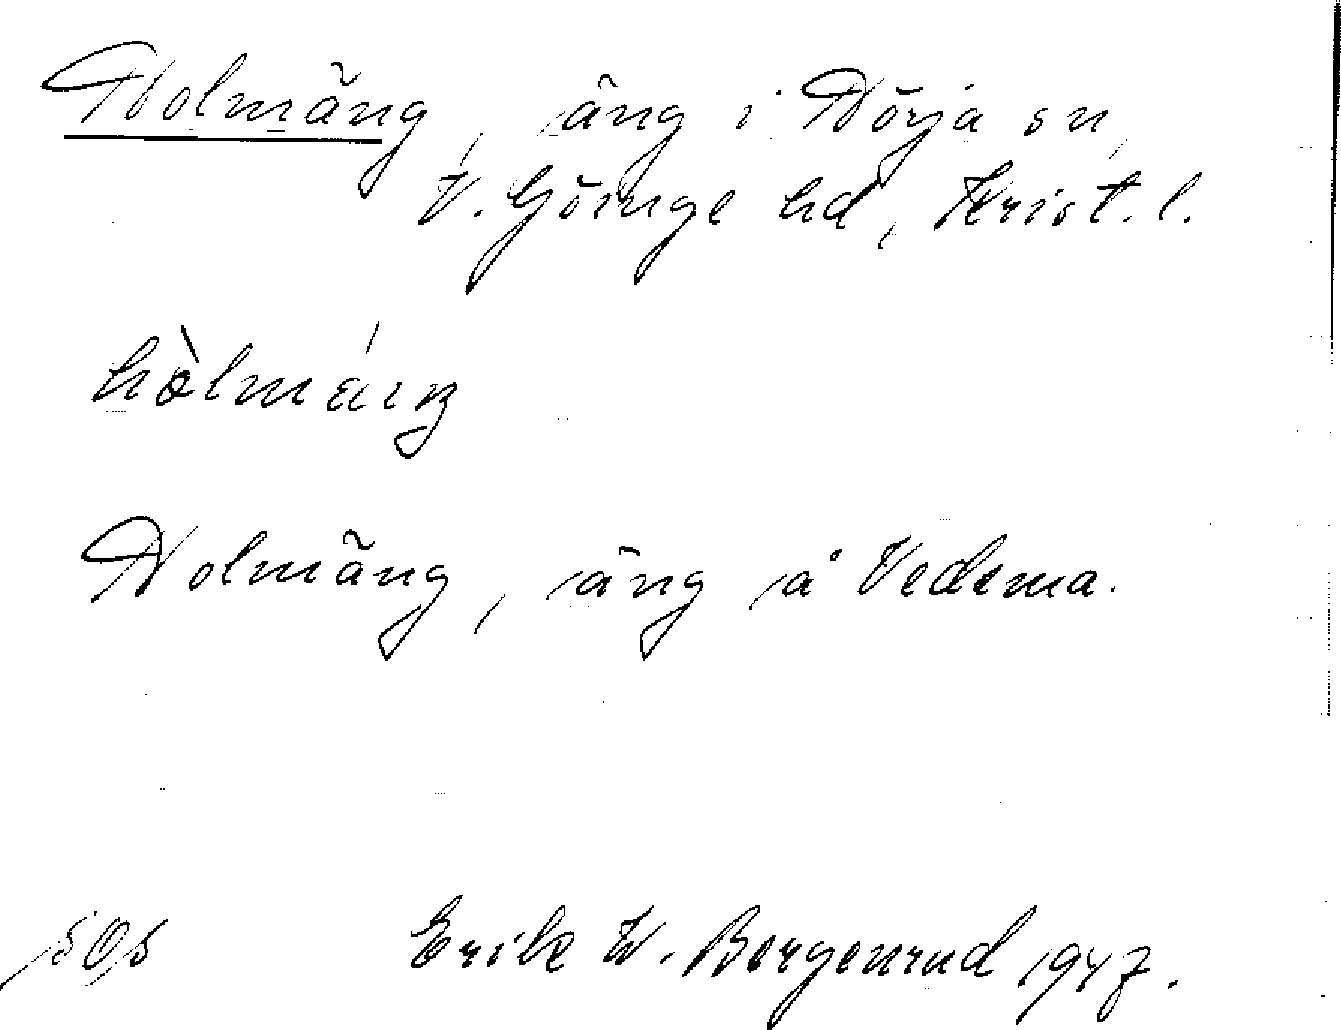 Holmäng, äng i Hörja sn,
V. Göinge hd, Krist. l.
hòlmáiŋ
Holmäng, äng å Vedema.
Erik W. Bergenrud 1947.